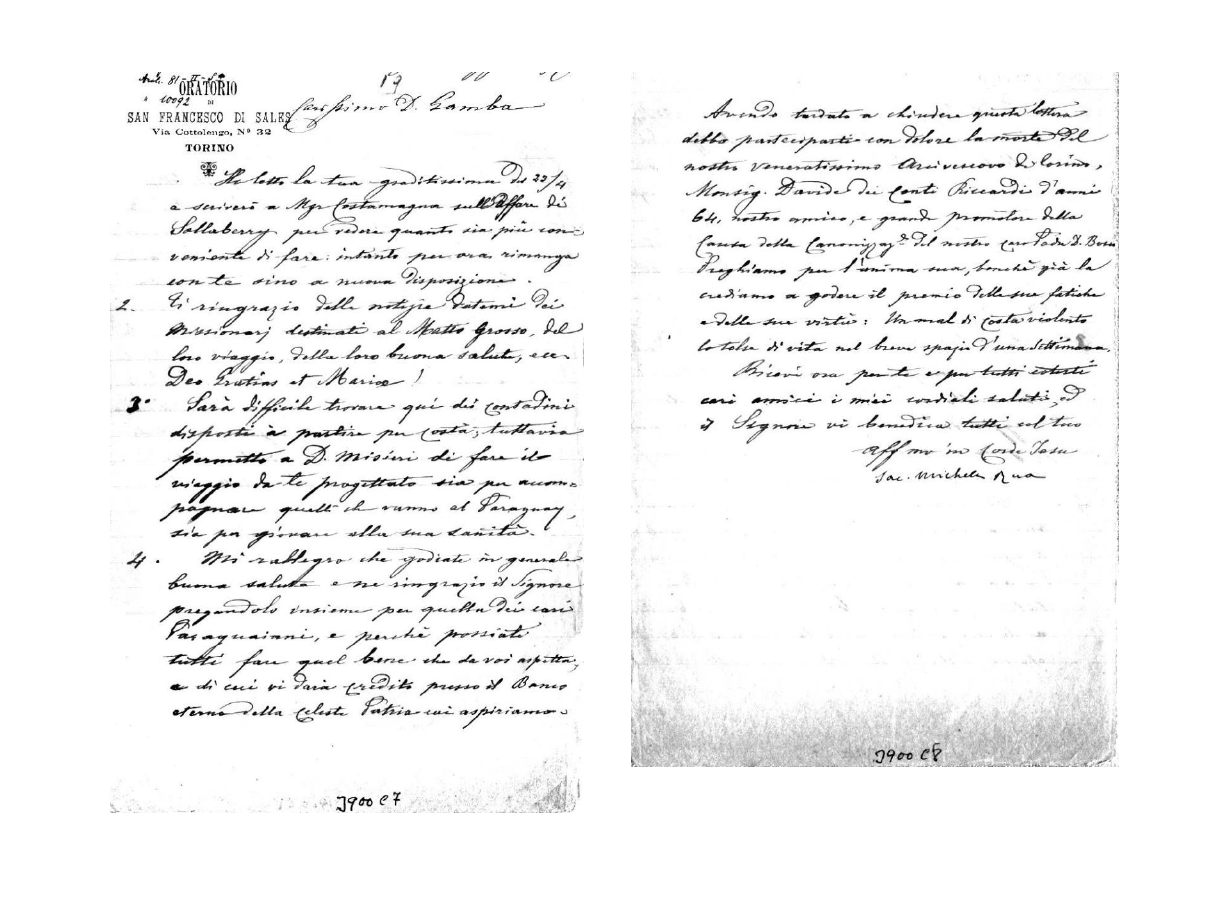 ORATORIO
DI
SAN FRANCESCO DI SALES
Via Cottolengo, Nº 32
TORINO
10092
19
Carissimo D. Gamba
Ho letto la tua graditissima del 23/4
e scriverò a Mgr Costamagna sull'affare di
Sallaberry per vedere quanto sia più con-
veniente di fare: intanto per ora rimanga
con te sino a nuova disposizione.
2. Ti ringrazio delle notizie datemi dei
Missionarj destinati al Matto Grosso, del
loro viaggio, della loro buona salute, ecc.
Deo Gratias et Mariae!
3º Sarà difficile trovare qui dei contadini
disposti a partire per costà; tuttavia
permetto a D. Misieri di fare il
viaggio da te progettato sia per accom=
pagnare quelli che vanno al Paraguay,
sia per giovare alla sua sanità.
4. Mi rallegro che godiate in generale
buona salute e ne ringrazio il Signore
pregandolo insieme per quella dei cari
Paraguaiani, e perchè possiate
tutti fare quel bene che da voi aspetta,
e di cui vi darà credito presso il Banco
eterno della Celeste Patria cui aspiriamo.
J900 C7
Avendo tardato a chiudere questa lettera
debbo parteciparti con dolore la morte del
nostro veneratissimo Arcivescovo di Torino,
Monsig. Davide dei Conti Riccardi d'anni
64, nostro amico, e grande promotore della
Causa della Canonizzaz.e del nostro caro Padre D. Bosco
Preghiamo per l'anima sua, benchè già la
crediamo a godere il premio delle sue fatiche
e delle sue virtù: Un mal di costa violento
lo tolse di vita nel breve spazio d'una settimana.
Ricevi ora per te e per tutti cotesti
cari amici i miei cordiali saluti, ed
il Signore vi benedica tutti col tuo
Aff.mo in Corde Jesu
Sac. Michele Rua
J900 C8